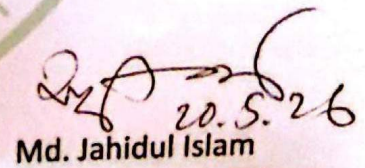 20.5.26
Md. Jahidul Islam